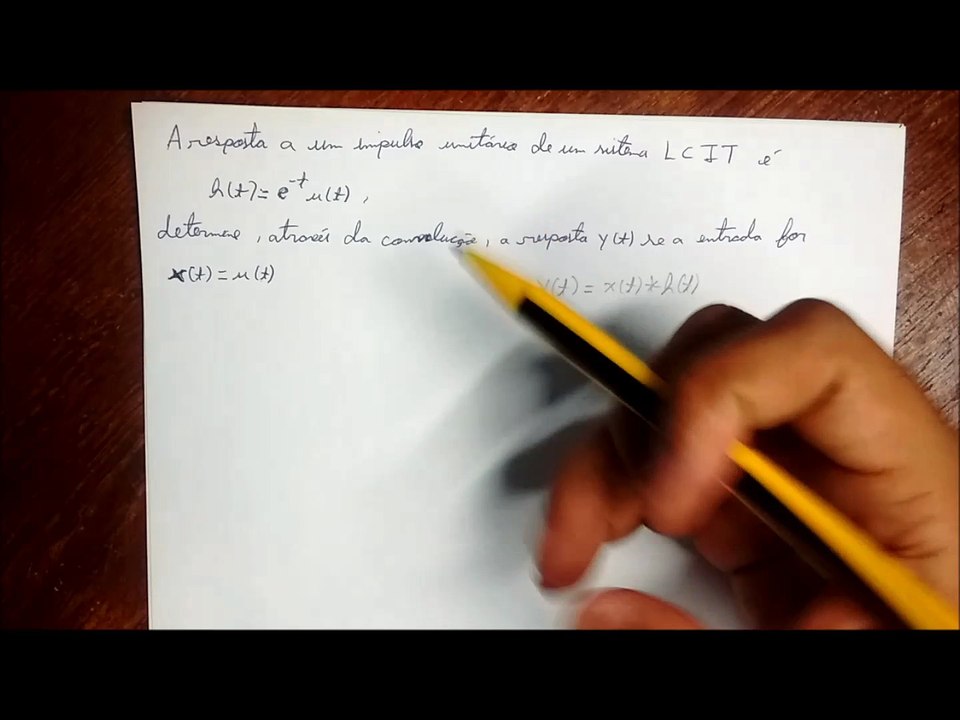 A resposta a um impulso unitário de um sistema LCIT é
h(t) = e^-t u(t),
determine, através da convolução, a resposta y(t) se a entrada for
x(t) = u(t)
y(t) = x(t) * h(t)